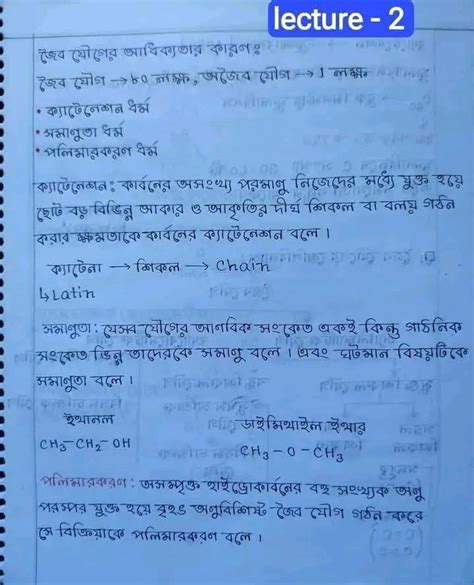 lecture - 2
জৈব যৌগের আধিক্যতার কারণঃ
জৈব যৌগ → ৮০ লক্ষ, অজৈব যৌগ → 1 লক্ষ
• ক্যাটেনেশন ধর্ম
• সমানুতা ধর্ম
• পলিমারকরণ ধর্ম
ক্যাটেনেশন: কার্বনের অসংখ্য পরমানু নিজেদের মধ্যে যুক্ত হয়ে
ছোট বড় বিভিন্ন আকার ও আকৃতির দীর্ঘ শিকল বা বলয় গঠন
করার ক্ষমতাকে কার্বনের ক্যাটেনেশন বলে।
ক্যাটেনা → শিকল → Chain
↳ Latin
সমানুতা: যেসব যৌগের আনবিক সংকেত একই কিন্তু গাঠনিক
সংকেত ভিন্ন তাদেরকে সমানু বলে। এবং ঘটমান বিষয়টিকে
সমানুতা বলে।
ইথানল ডাইমিথাইল ইথার
CH₃-CH₂-OH CH₃-O-CH₃
পলিমারকরণ: অসম্পৃক্ত হাইড্রোকার্বনের বহু সংখ্যক অনু
পরস্পর যুক্ত হয়ে বৃহৎ অনুবিশিষ্ট জৈব যৌগ গঠন করে
সে বিক্রিয়াকে পলিমারকরণ বলে।